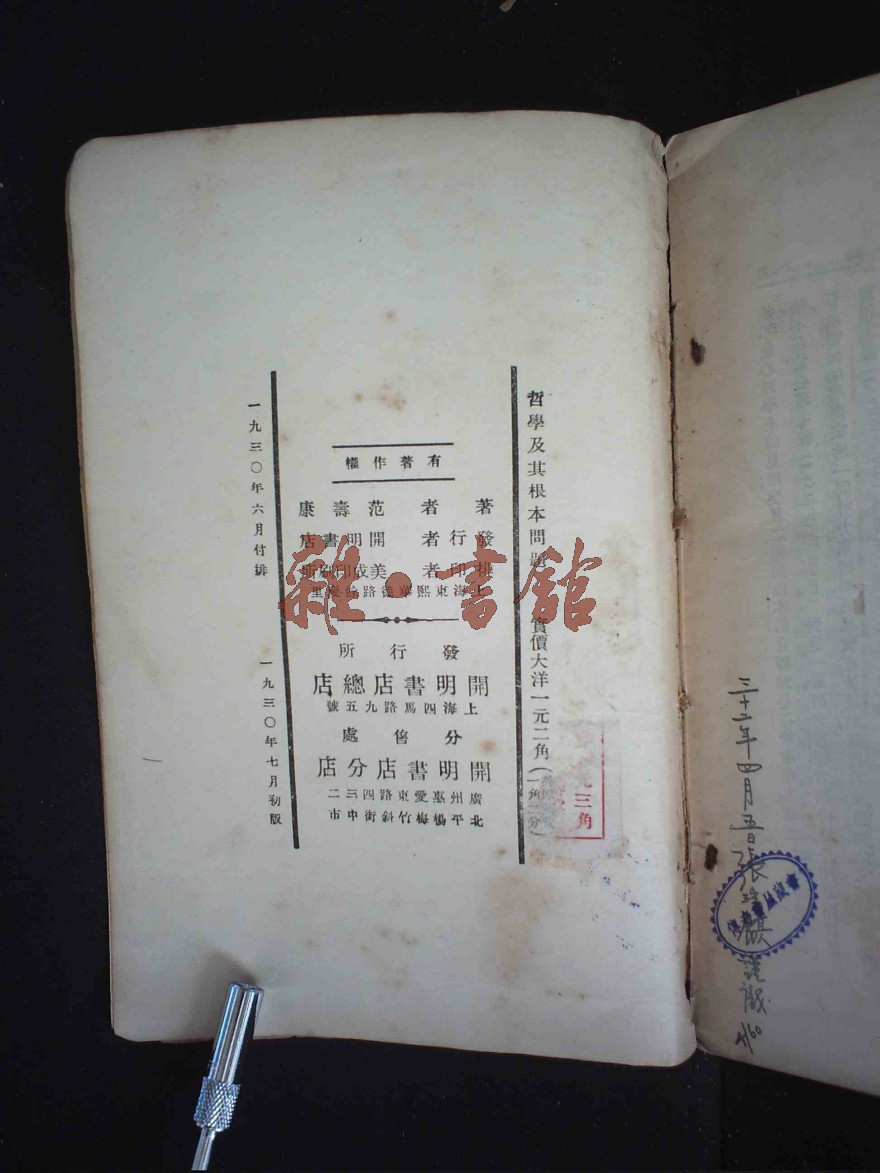 哲學及其根本問題
實價大洋一元二角
有著作權
著者 范壽康
發行者 開明書店
排印者 美成印刷所
上海東熙華德路餘慶里
發行所
開明書店總店
上海四馬路九五號
分售處
開明書店分店
廣州惠愛東路四三二
北平楊梅竹斜街中市
一九三〇年六月付排
一九三〇年七月初版
雜·書館
三角
三十二年四月